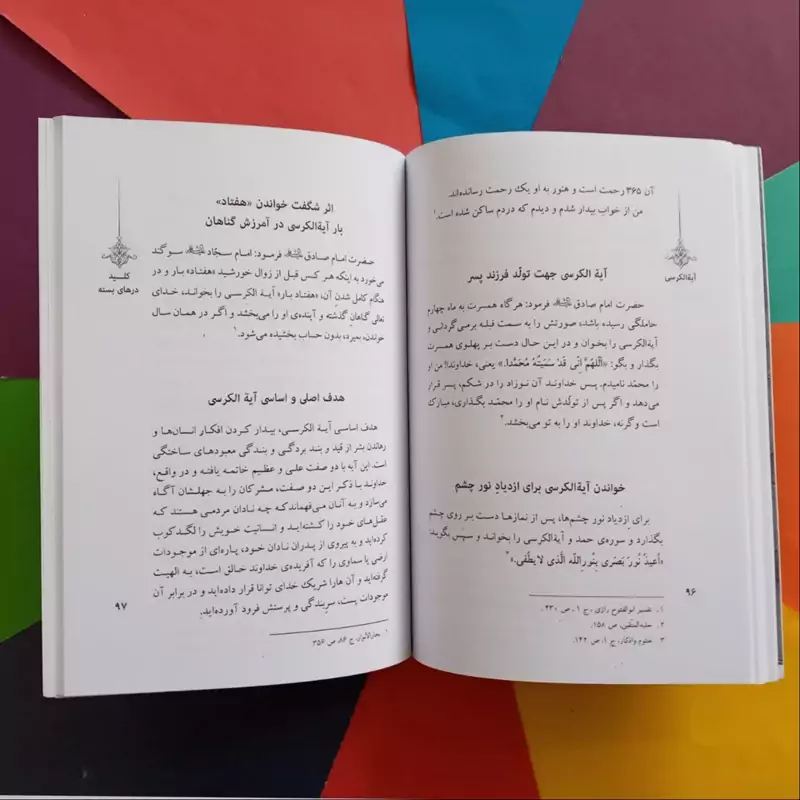 آیةالکرسی
آن ۳۶۵ رحمت است و هنور به او یک رحمت رسانده‌اند.
من از خواب بیدار شدم و دیدم که دردم ساکن شده است.۱
آیة الکرسی جهت تولّد فرزند پسر
حضرت امام صادق فرمود: هرگاه همسرت به ماه چهارم
حاملگی رسیده باشد، صورتش را به سمت قبله برمی‌گردانی و
آیةالکرسی را بخوان و در این حال دست بر پهلوی همسرت
بگذار و بگو: «اَللّهمَّ اِنّی قَدْ سَمَّیتُهُ مُحَمَّدا.» یعنی، خداوند! من او
را محمّد نامیدم. پس خداوند آن نوزاد را در شکم، پسر قرار
می‌دهد و اگر پس از تولّدش نام او را محمّد بگذاری، مبارک
است وگرنه، خداوند او را به تو می‌بخشد.۲
خواندن آیةالکرسی برای ازدیادِ نور چشم
برای ازدیاد نور چشم‌ها، پس از نمازها دست بر روی چشم
بگذارد و سوره‌ی حمد و آیةالکرسی را بخواند و سپس بگوید:
«اُعیذُ نُورَ بَصَری بِنُورِاللّه الَّذی لایطْفی.»۳
۱. تفسیر ابوالفتوح رازی، ج ۱، ص ۴۳۰.
۲. حلیه‌المتّقین، ص ۱۵۸.
۳. ختوم واذکار، ج ۱، ص ۱۴۲.
۹۶
کلـیـد
درهای بسته
اثر شگفت خواندن «هفتاد»
بار آیةالکرسی در آمرزش گناهان
حضرت امام صادق فرمود: امام سجّاد سوگند
می‌خورد به اینکه هر کس قبل از زوال خورشید «هفتاد» بار و در
هنگام کامل شدنِ آن، «هفتاد بار» آیة الکرسی را بخواند، خدای
تعالی گناهان گذشته و آینده‌ی او را می‌بخشد و اگر در همان سال
خوندن، بمیرد، بدون حساب بخشیده می‌شود.۱
هدف اصلی و اساسی آیة الکرسی
هدف اساسی آیة الکرسی، بیدار کردن افکار انسان‌ها و
رهاندن بشر از قید و بنـد بردگی و بندگی معبودهای ساختگی
است. این آیه با دو صفت علی و عظیم خاتمه یافته و در واقع،
خداوند با ذکر این دو صفت، مشرکان را به جهلشان آگاه
می‌سازد و به آنان می‌فهماندکه چه نادان مردمی هستند که
عقل‌های خود را کشته‌اید و انسانیت خویش را لگدکوب
کرده‌اید و به پیروی از پدران نادان خود، پاره‌ای از موجودات
ارضی یا سماوی را که آفریده‌ی خداوند خالق است، به الهیت
گرفته‌اید و آن هارا شریک خدای توانا قرار داده‌اید و در برابر آن
موجودات پست، سربندگی و پرستش فرود آورده‌اید.
۱. بحارالانوار، ج ۸۶، ص ۳۵۶
۹۷